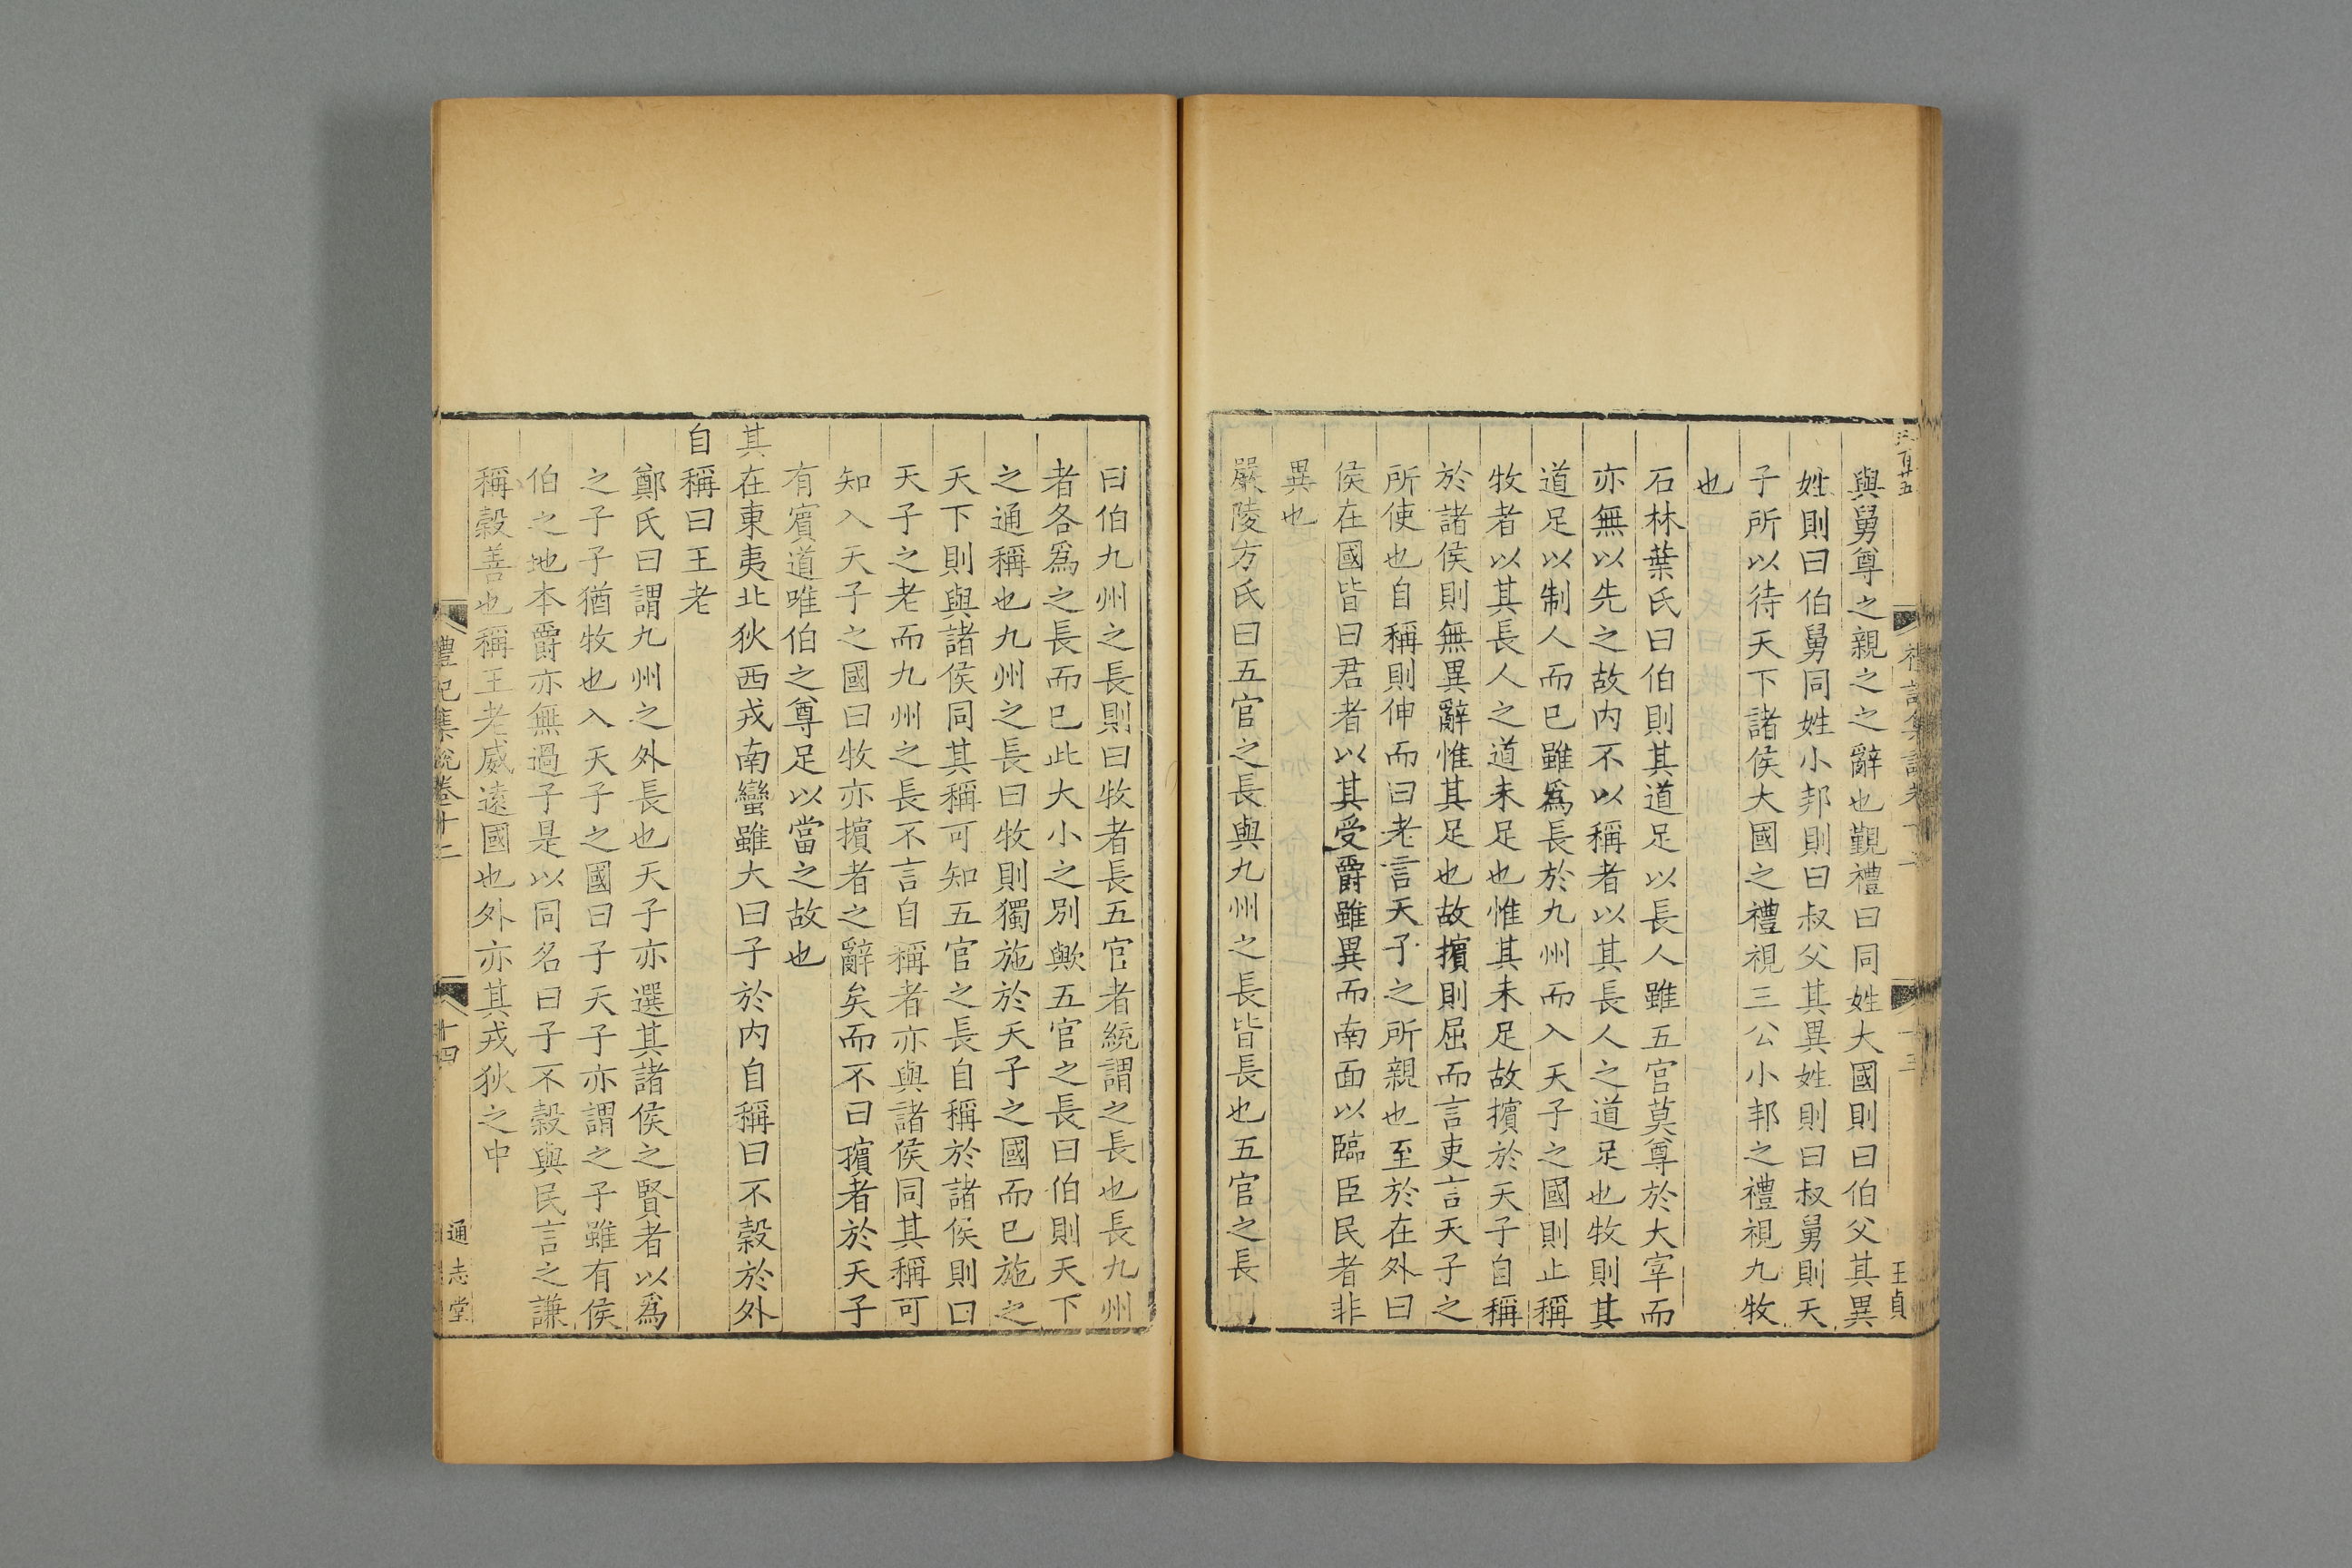 與舅尊之親之之辭也覲禮曰同姓大國則曰伯父其異
姓則曰伯舅同姓小邦則曰叔父其異姓則曰叔舅則天
子所以待天下諸侯大國之禮視三公小邦之禮視九牧
也
石林葉氏曰伯則其道足以長人雖五官莫尊於大宰而
亦無以先之故内不以稱者以其長人之道足也牧則其
道足以制人而已雖爲長於九州而入天子之國則止稱
牧者以其長人之道未足也惟其未足故擯於天子自稱
於諸侯則無異辭惟其足也故擯則屈而言吏言天子之
所使也自稱則伸而曰老言天子之所親也至於在外曰
侯在國皆曰君者以其受爵雖異而南面以臨臣民者非
異也
嚴陵方氏曰五官之長與九州之長皆長也五官之長
王貞
曰伯九州之長則曰牧者長五官者統謂之長也長九州
者各爲之長而已此大小之別歟五官之長曰伯則天下
之通稱也九州之長曰牧則獨施於天子之國而已施之
天下則與諸侯同其稱可知五官之長自稱於諸侯則曰
天子之老而九州之長不言自稱者亦與諸侯同其稱可
知入天子之國曰牧亦擯者之辭矣而不曰擯者於天子
有賓道唯伯之尊足以當之故也
其在東夷北狄西戎南蠻雖大曰子於内自稱曰不穀於外
自稱曰王老
鄭氏曰謂九州之外長也天子亦選其諸侯之賢者以爲
之子子猶牧也入天子之國曰子天子亦謂之子雖有侯
伯之地本爵亦無過子是以同名曰子不穀與民言之謙
稱穀善也稱王老威遠國也外亦其戎狄之中
禮記集説卷十二
十四
通志堂